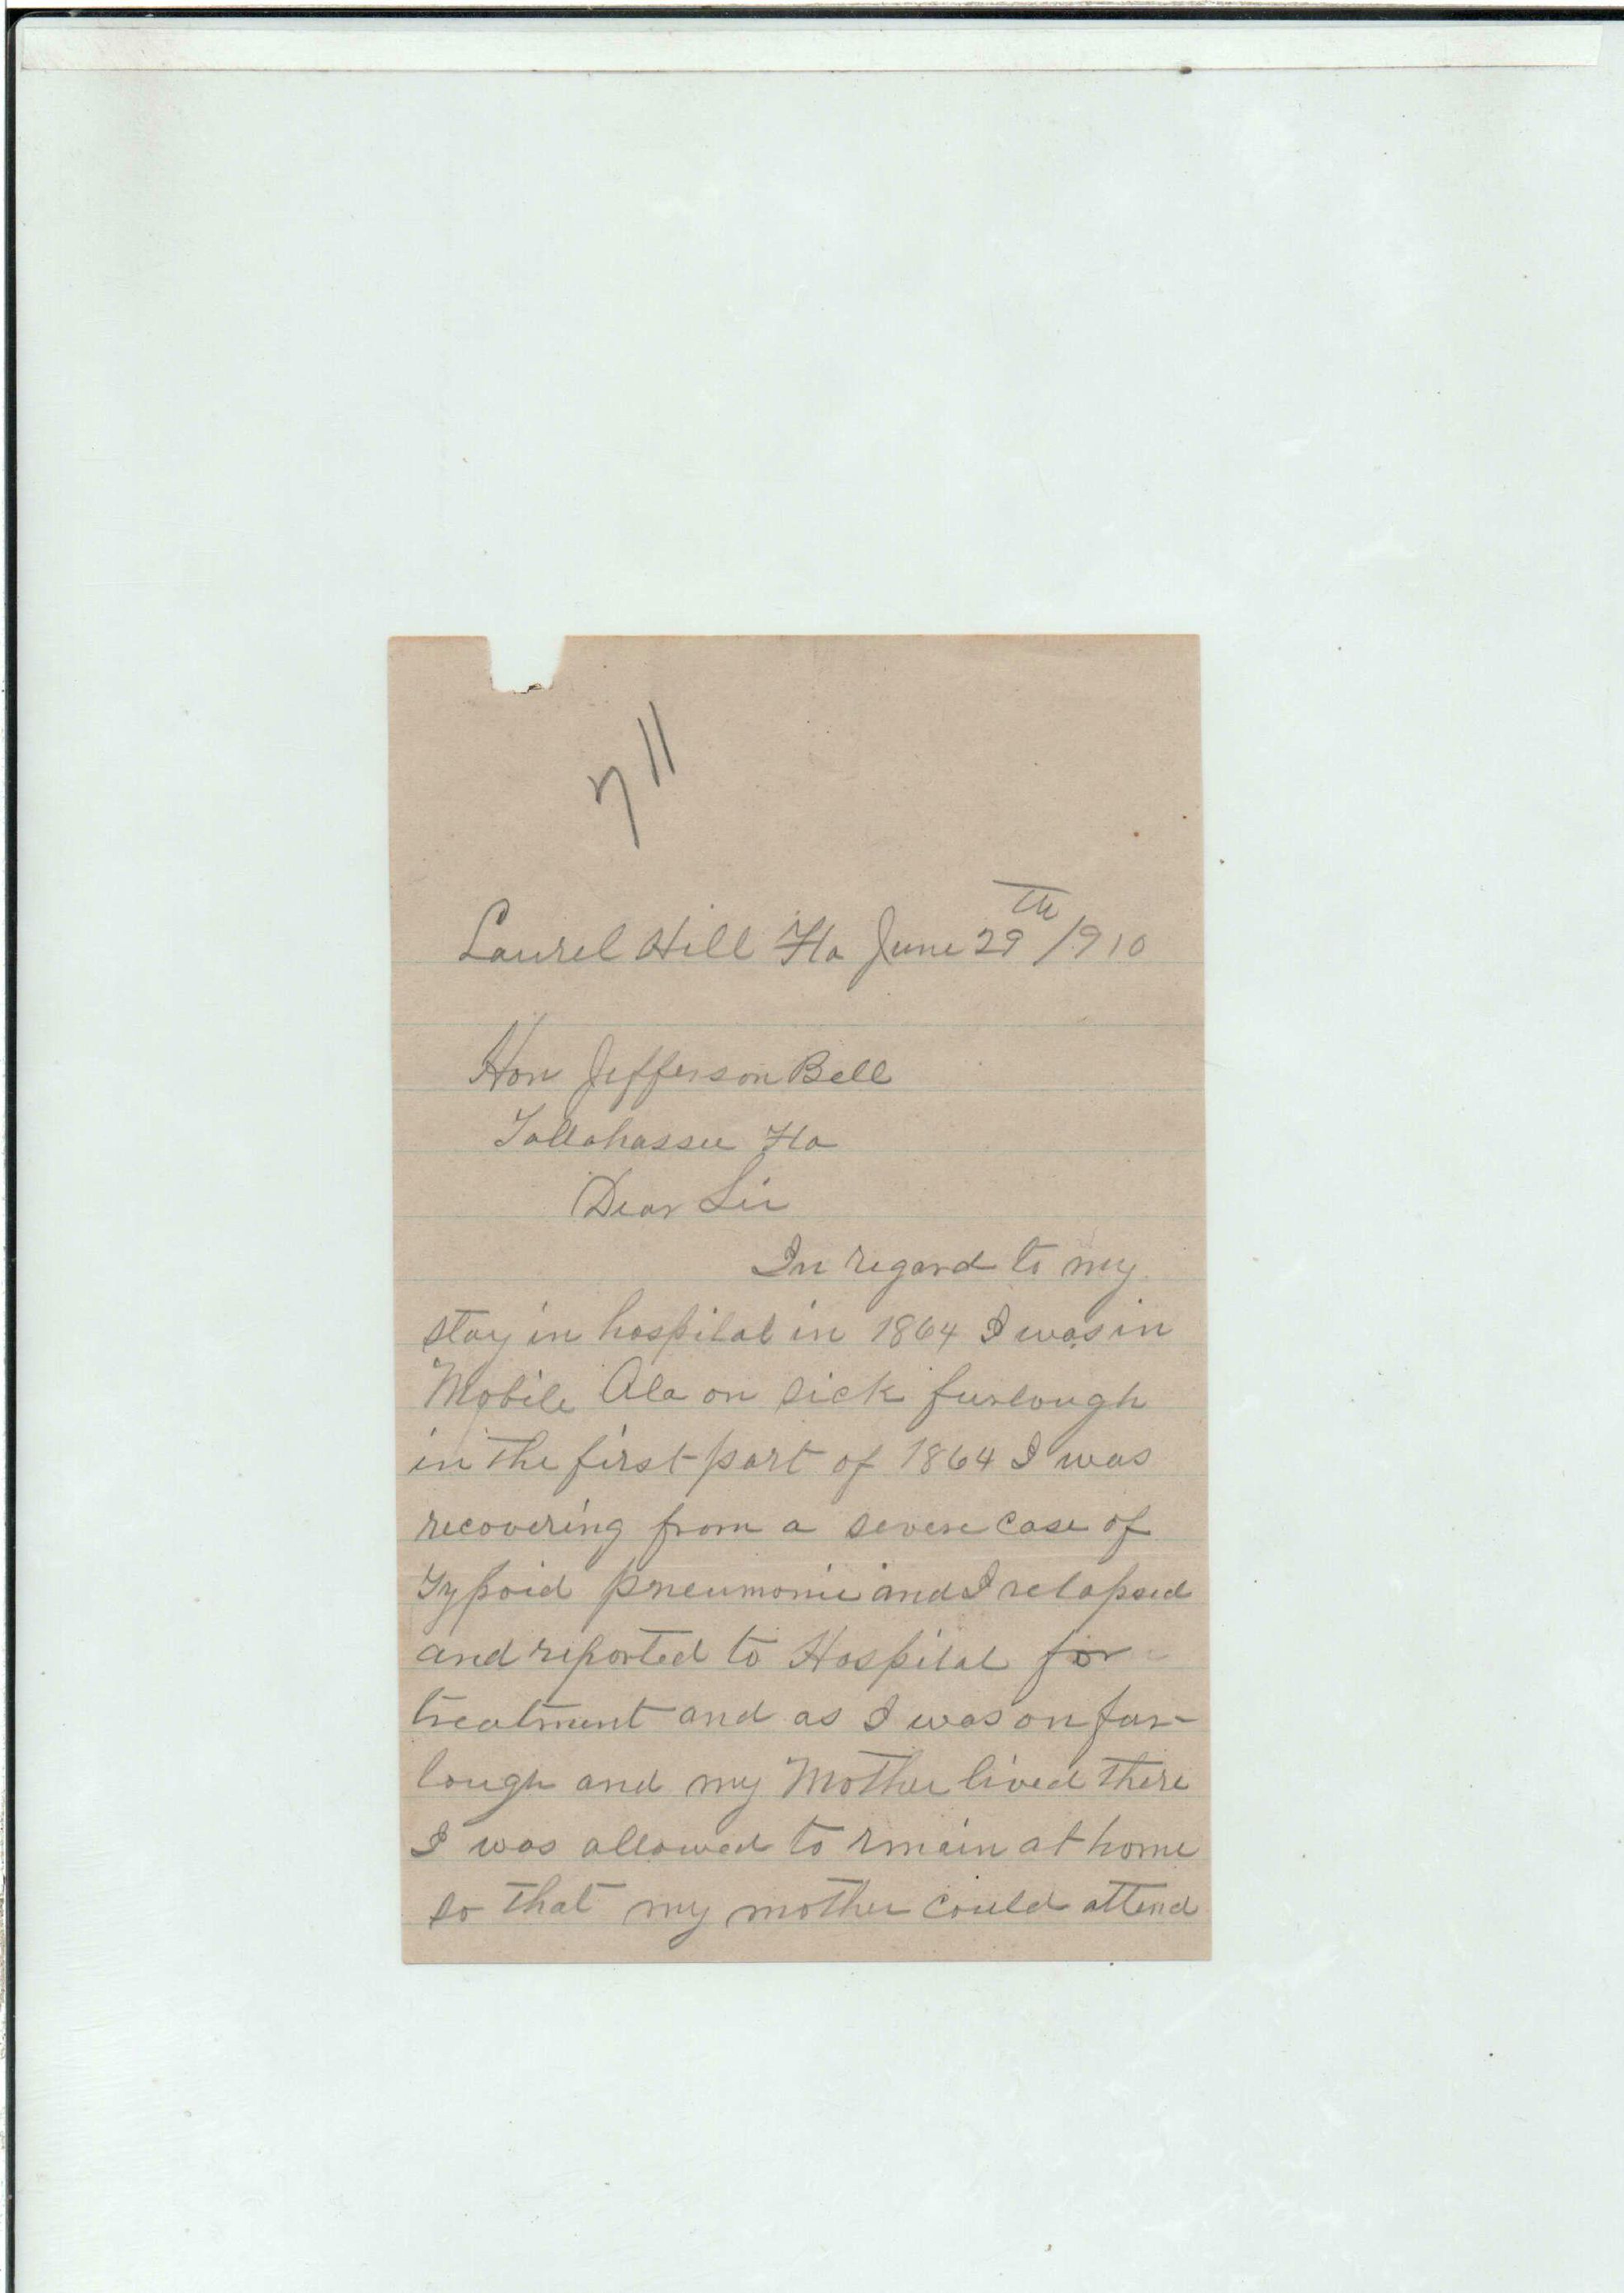 711
Laurel Hill Fla June 29th/1910
Hon Jefferson Bell
Tallahassee Fla
Dear Sir
In regard to my
stay in hospital in 1864 I was in
Mobile Ala on sick furlough
in the first part of 1864 I was
recovering from a severe case of
Typoid pneumonie and I relapsed
and reported to Hospital for
treatment and as I was on fur-
lough and my Mother lived there
I was allowed to rmain at home
so that my mother could attend